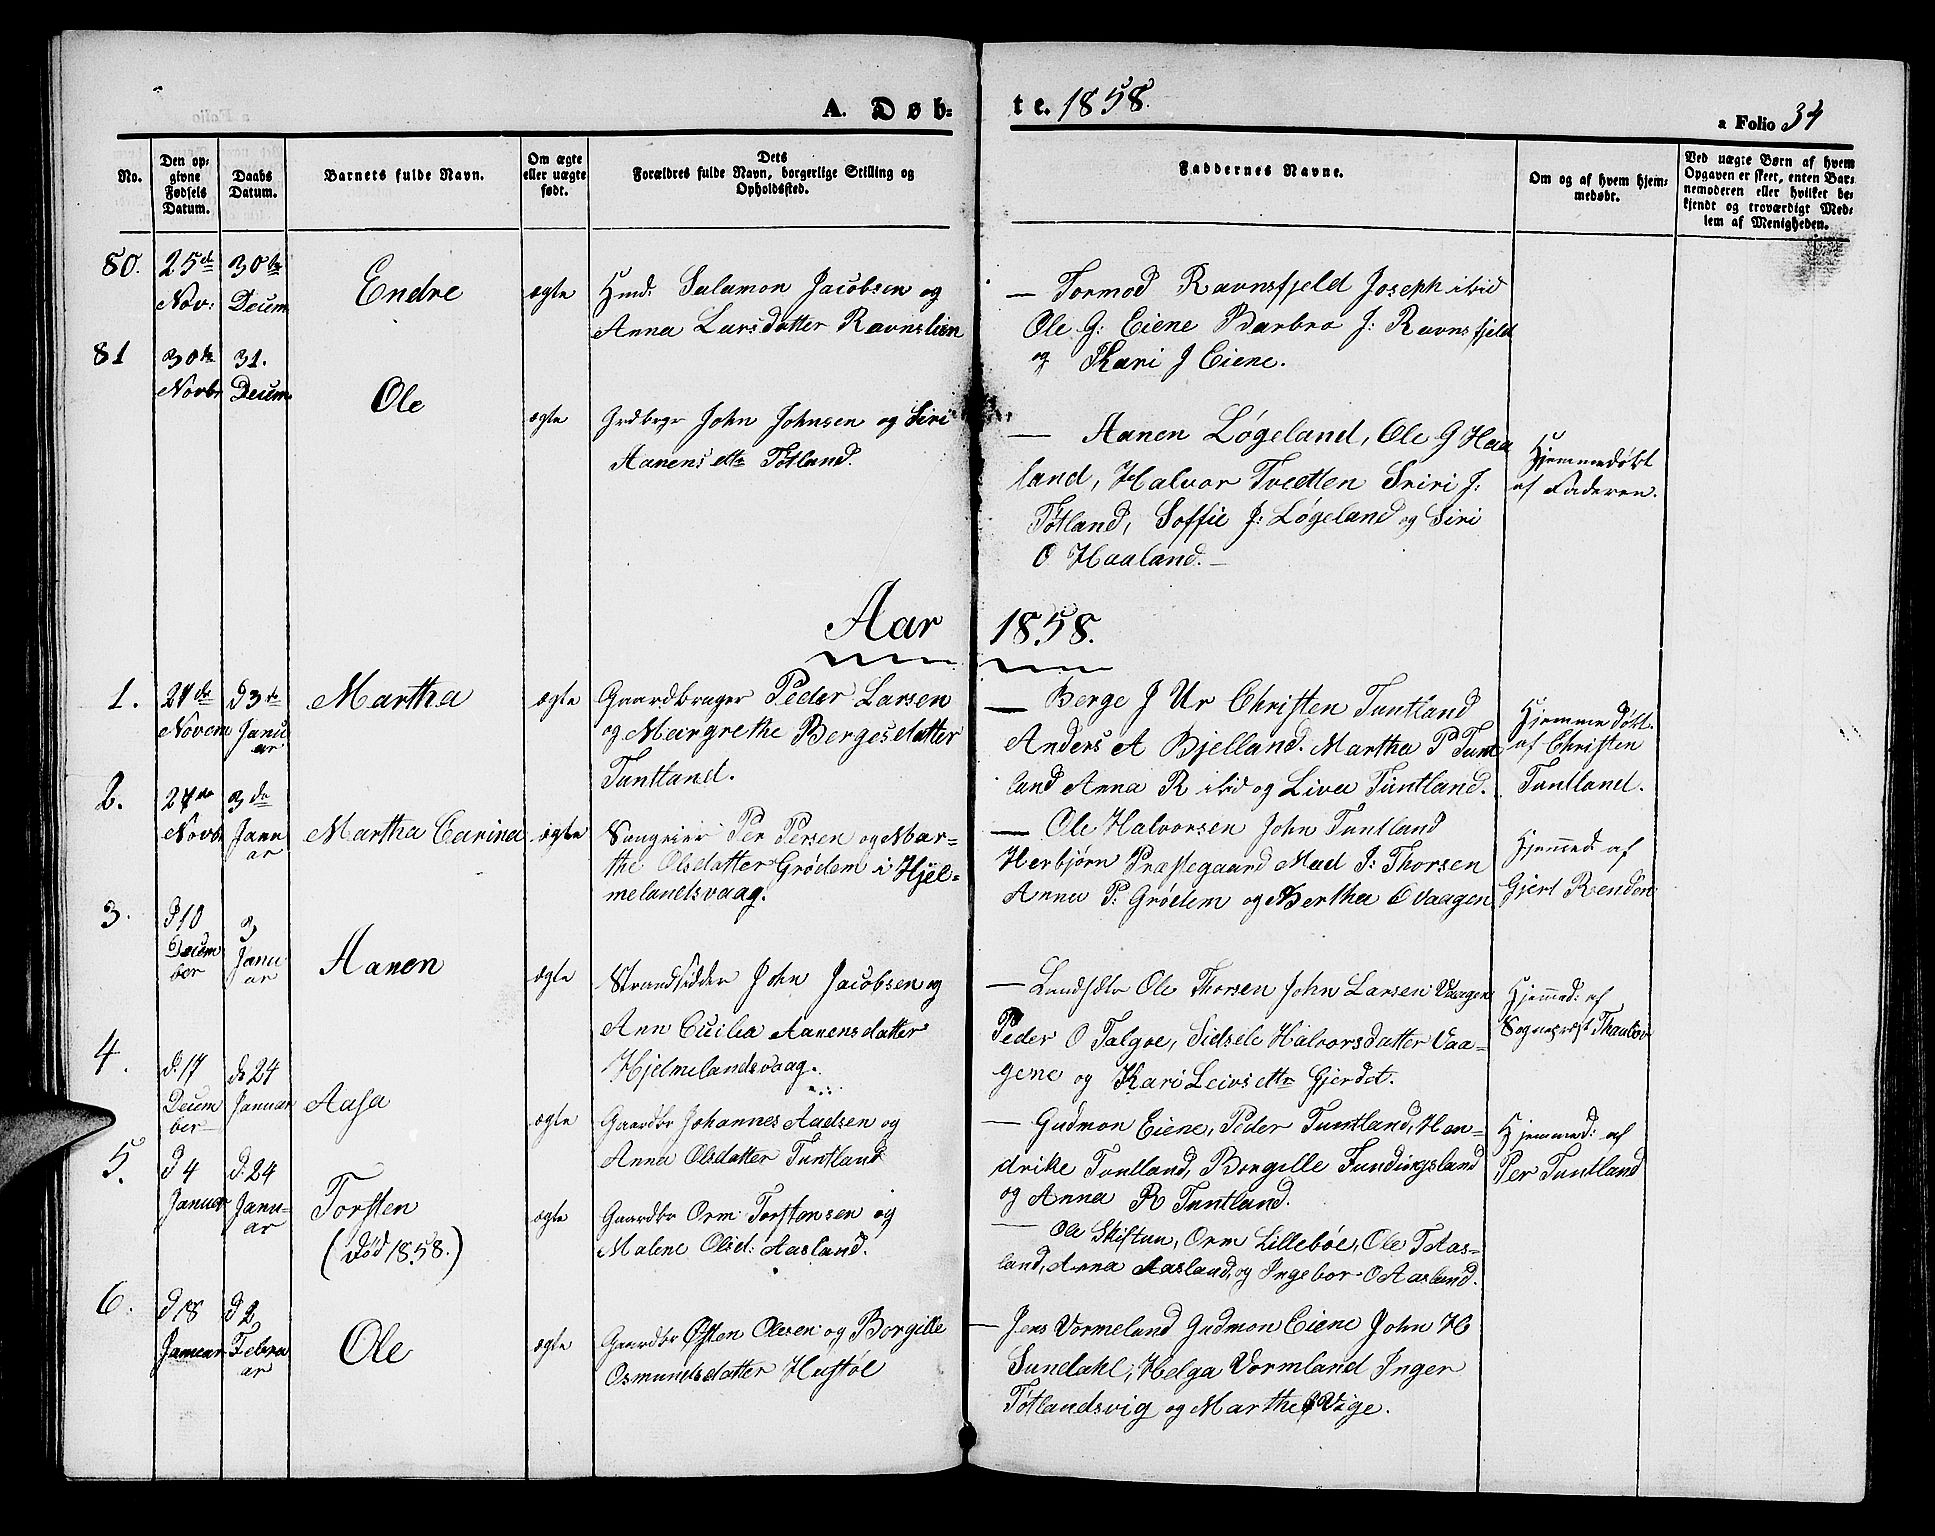 A. Døb-
te. 1858.
a Folio 34
No.
Den op-
givne
Fødsels
Datum.
Daabs
Datum.
Barnets fulde Navn.
Om ægte
eller uægte
født.
Dets
Forældres fulde Navn, borgerlige Stilling og
Opholdssted.
Faddernes Navne.
Om og af hvem hjem-
medøbt.
Ved uægte Børn af hvem
Opgaven er skeet, enten Bar-
nemoderen eller hvilket be-
kjendt og troværdigt Med-
lem af Menigheden.
80.
25de
Nov:
30te
Decem
Endre
ægte
Hmd: Salamon Jacobsen og
Anna Larsdatter Ravnslien
— Tormod Ravnsfjeld Joseph ibid
Ole G: Eiene Barbro J: Ravnsfjeld
og Kari J Eiene.
81
30te
Novbr
31.
Decem
Ole
ægte
Grdbrgr John Johnsen og Siri
Aanensdtr Tøtland.
— Aanen Løgeland, Ole G Haa
land, Halvor Tvedten Sriri J:
Tøtland, Soffie J: Løgeland og Siri
O Haaland. —
Hjemmedøbt
af Faderen.
Aar 1858.
1.
27de
Novem
D 3de
Janu
ar
Martha
ægte
Gaardbruger Peder Larsen
og Margrethe Bergesdatter
Tuntland.
— Berge J Ur Christen Tuntland
Anders A Bjelland. Martha P Tunt
land Anna R ibid og Liva Tuntland.
Hjemmedøbt
af Christen
Tuntland.
2.
27de
Novb
3de
Janu
ar
Martha Carina
ægte
Per Persen og Mar-
the Olsdatter Grødem i Hjel-
melandsvaag.
— Ole Halvorsen John Tuntland
Herbjørn Præstegaard Mad J: Thorsen
Anna P: Grødem og Bertha O Vaagen
Hjemmed: af
Gjert Rendon
3.
D 10
Decem
ber
3
Janu
ar
Aanen
ægte
Strandsidder John Jacobsen og
Ann Cicilia Aanensdatter
Hjelmelandsvaag.
— Ole Thorsen John Larsen Vaagen
Peder O Talgøe, Sidsele Halvorsdatter Vaa-
gene og Kari Leivsdtr Gjerdet.
Hjemmed: af
Sognepræst
4.
d. 17
Decem
ber
de 24
Januar
Aasa
ægte
Gaardbr Johannes Aadsen og
Anna Olsdatter Tuntland
— Gudmon Eiene, Peder Tuntland, Hen-
drike Tuntland, Borgille Fundingsland
og Anna R Tuntland.
Hjemmed: af
Per Tuntland
5.
D 4
Januar
D. 24
Janu-
ar
Torsten
(død 1858.)
ægte
Gaardbr Orm Torstensen og
Malene Olsd: Aasland.
— Ole Skiftun, Orm Lillebøe, Ole T Aas-
land, Anna Aasland, og Ingebor O Aasland.
6.
D 18
Januar
D 2
Febru
ar
Ole
ægte
Gaardbr Østen Olesen og Borgille
Osmundsdatter Hustøl
— Jens Vormeland Gudmon Eiene John H
Sundahl, Helga Vormland Inger
Tøtlandsvig og Marthe J Vige.